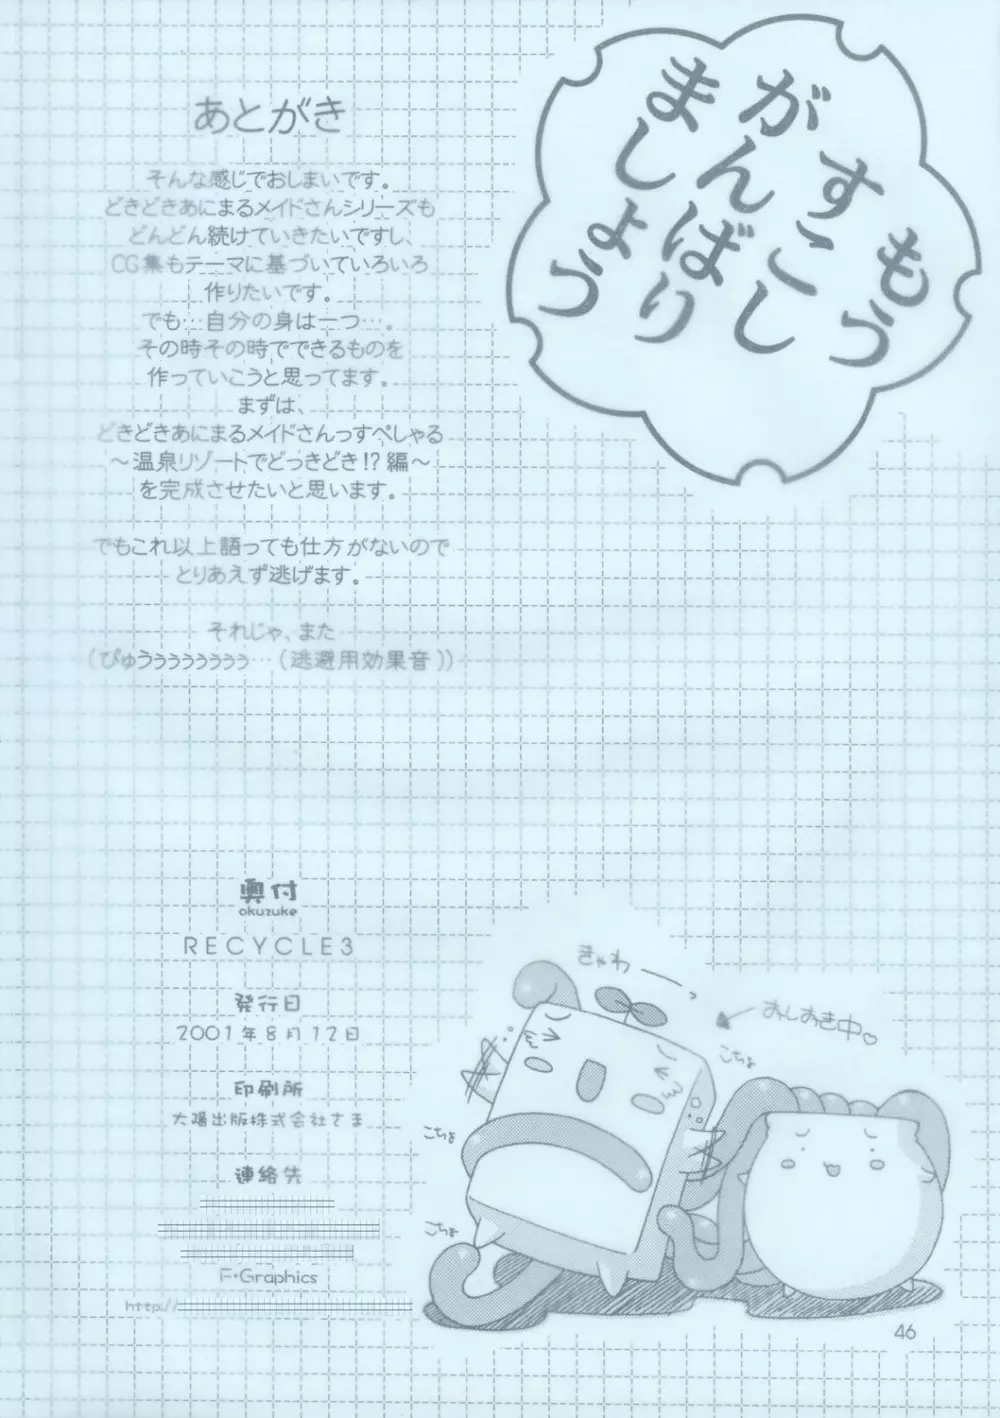 もうすこし
がんばり
ましょう
あとがき
そんな感じでおしまいです。
どきどきあにまるメイドさんシリーズも
どんどん続けていきたいですし、
CG集もテーマに基づいていろいろ
作りたいです。
でも…自分の身は一つ…。
その時その時でできるものを
作っていこうと思ってます。
まずは、
どきどきあにまるメイドさんっすぺしゃる
～温泉リゾートでどっきどき!?編～
を完成させたいと思います。
でもこれ以上語っても仕方がないので
とりあえず逃げます。
それじゃ、また
(ぴゅうぅぅぅぅぅぅぅ…(逃避用効果音))
奥付
okuzuke
RECYCLE3
発行日
2001年8月12日
印刷所
大陽出版株式会社さま
連絡先
F・Graphics
http://
きゃわーっ
おしおき中♡
こちょ
こちょ
こちょ
46